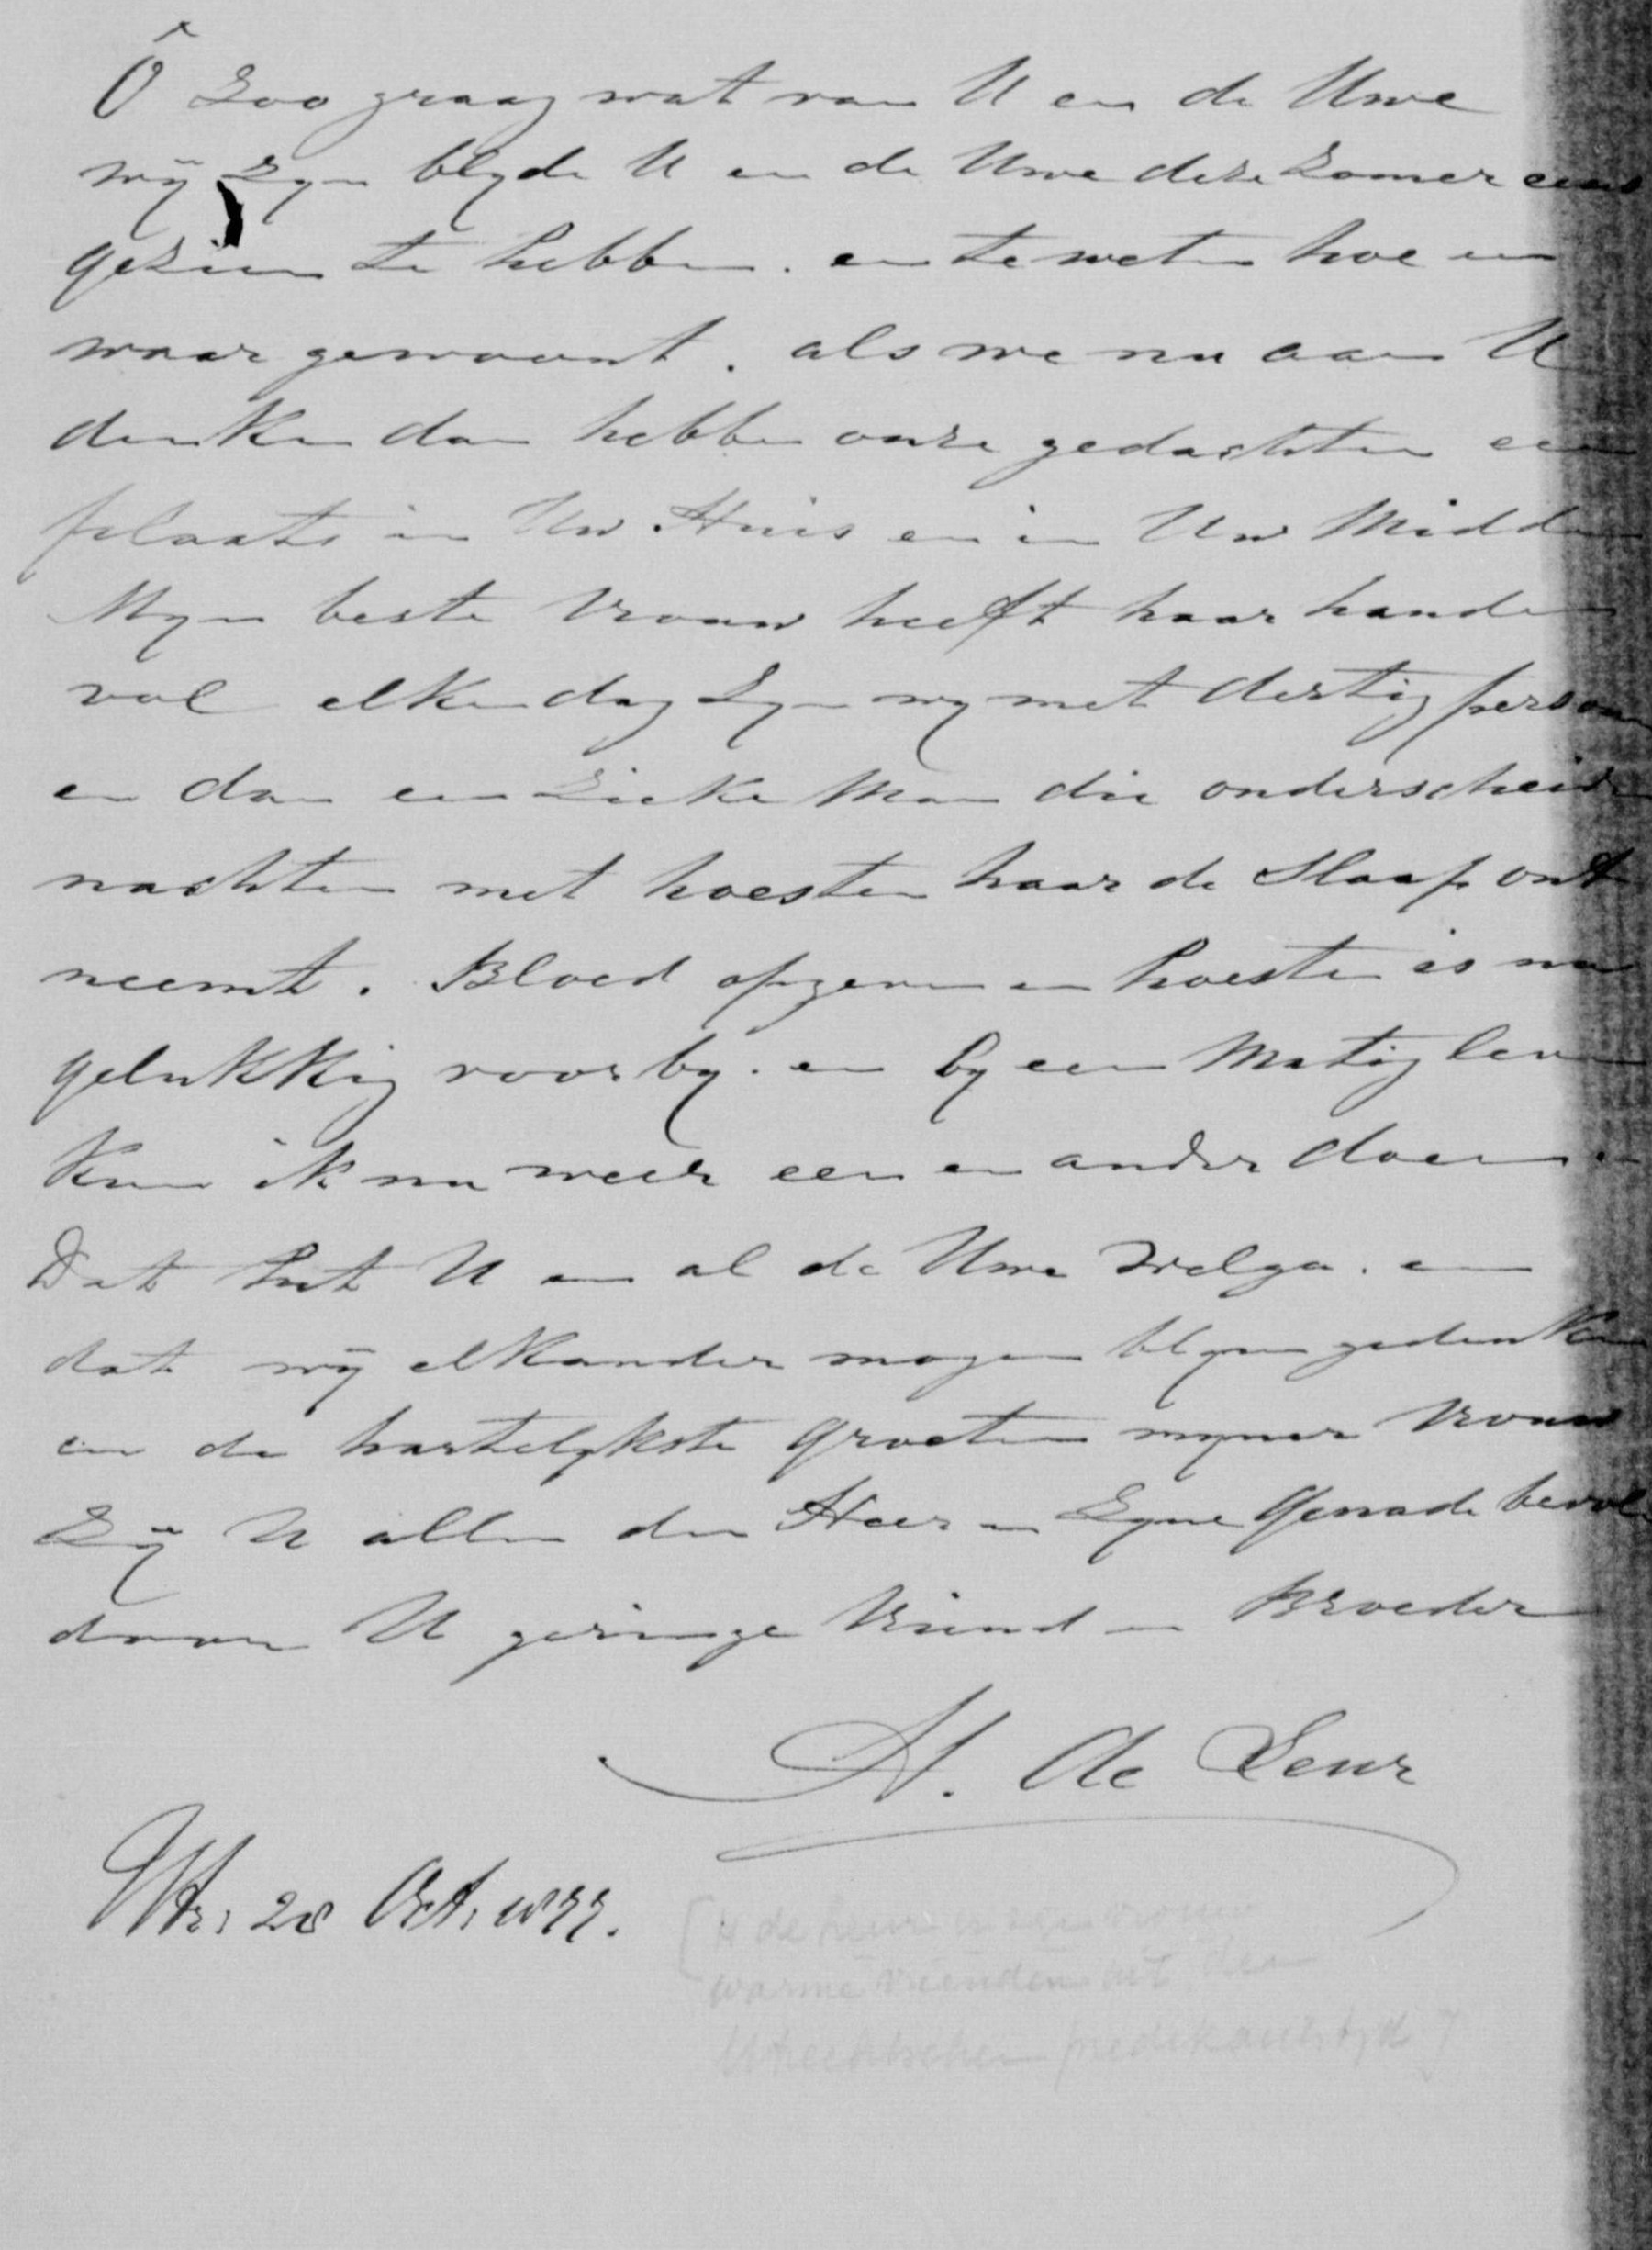 Ô Zoo graag wat van U en de Uwe
wij zyn blyde U en de Uwe deze Zomer eens
gezien te hebben. en te weten hoe en
waar gewoont. als we nu aan U
denken dan hebben onze gedachten een
plaats in Uw Huis en in Uw Midden
Myn beste Vrouw heeft haar handen
vol elken dag Zyn wy met dertig person
en dan een Zieke Man die onderscheiden
nachten met hoesten haar de Slaap ont
neemt. Bloed opgeven en hoesten is nu
gelukkig voorby. en by een Matig leven
Kan ik nu weer een en ander doen.
Dat het U en al de Uwe welga. en
dat wij elkander mogen blyven gedenken
en de hartelykste Groeten myner Vrouw
Zij U allen den Heer en Zyne Genade bevolen
door U geringe Vriend en Broeder
H. de Leur
Utr: 28 Oct. 1877.
[H de Leur en zijn vrouw
warme vrienden uit den
Utrechtschen predikantstijd]